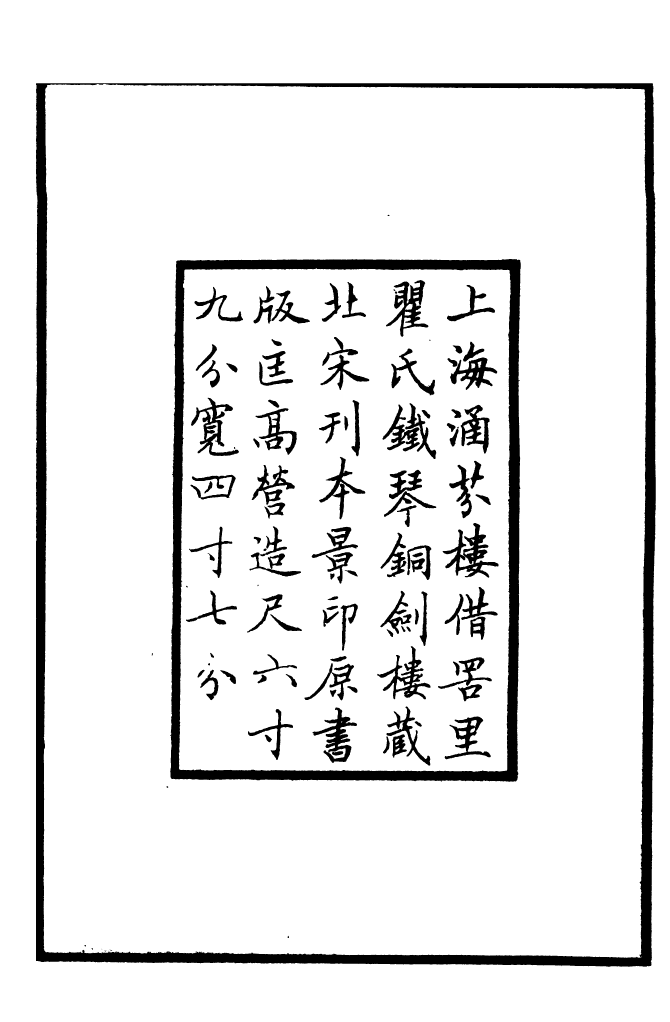 上海涵芬樓借罟里
瞿氏鐵琴銅劍樓藏
北宋刊本景印原書
版匡高營造尺六寸
九分寬四寸七分